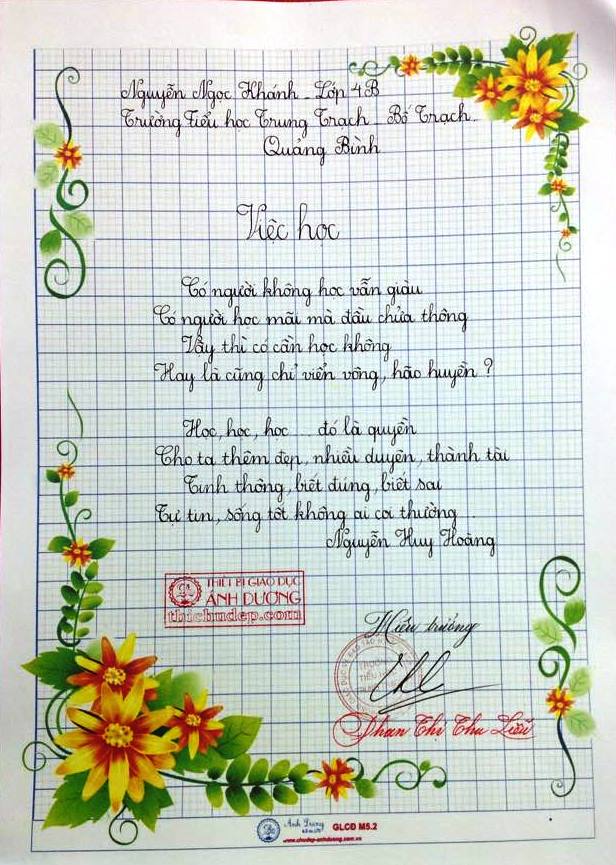 Nguyễn Ngọc Khánh - Lớp 4B
Trường Tiểu học Trung Trạch - Bố Trạch
Quảng Bình
Việc học
Có người không học vẫn giàu
Có người học mãi mà đầu chửa thông
Vậy thì có cần học không
Hay là cũng chỉ viển vông, hão huyền ?
Học, học, học ... đó là quyền
Cho ta thêm đẹp, nhiều duyên, thành tài
Tinh thông, biết đúng, biết sai
Tự tin, sống tốt không ai coi thường ...
Nguyễn Huy Hoàng
THIẾT BỊ GIÁO DỤC
ÁNH DƯƠNG
thichudep.com
Hiệu trưởng
Phan Thị Thu Liễu
Ánh Dương
GLCĐ M5.2
www.chudep-anhduong.com.vn